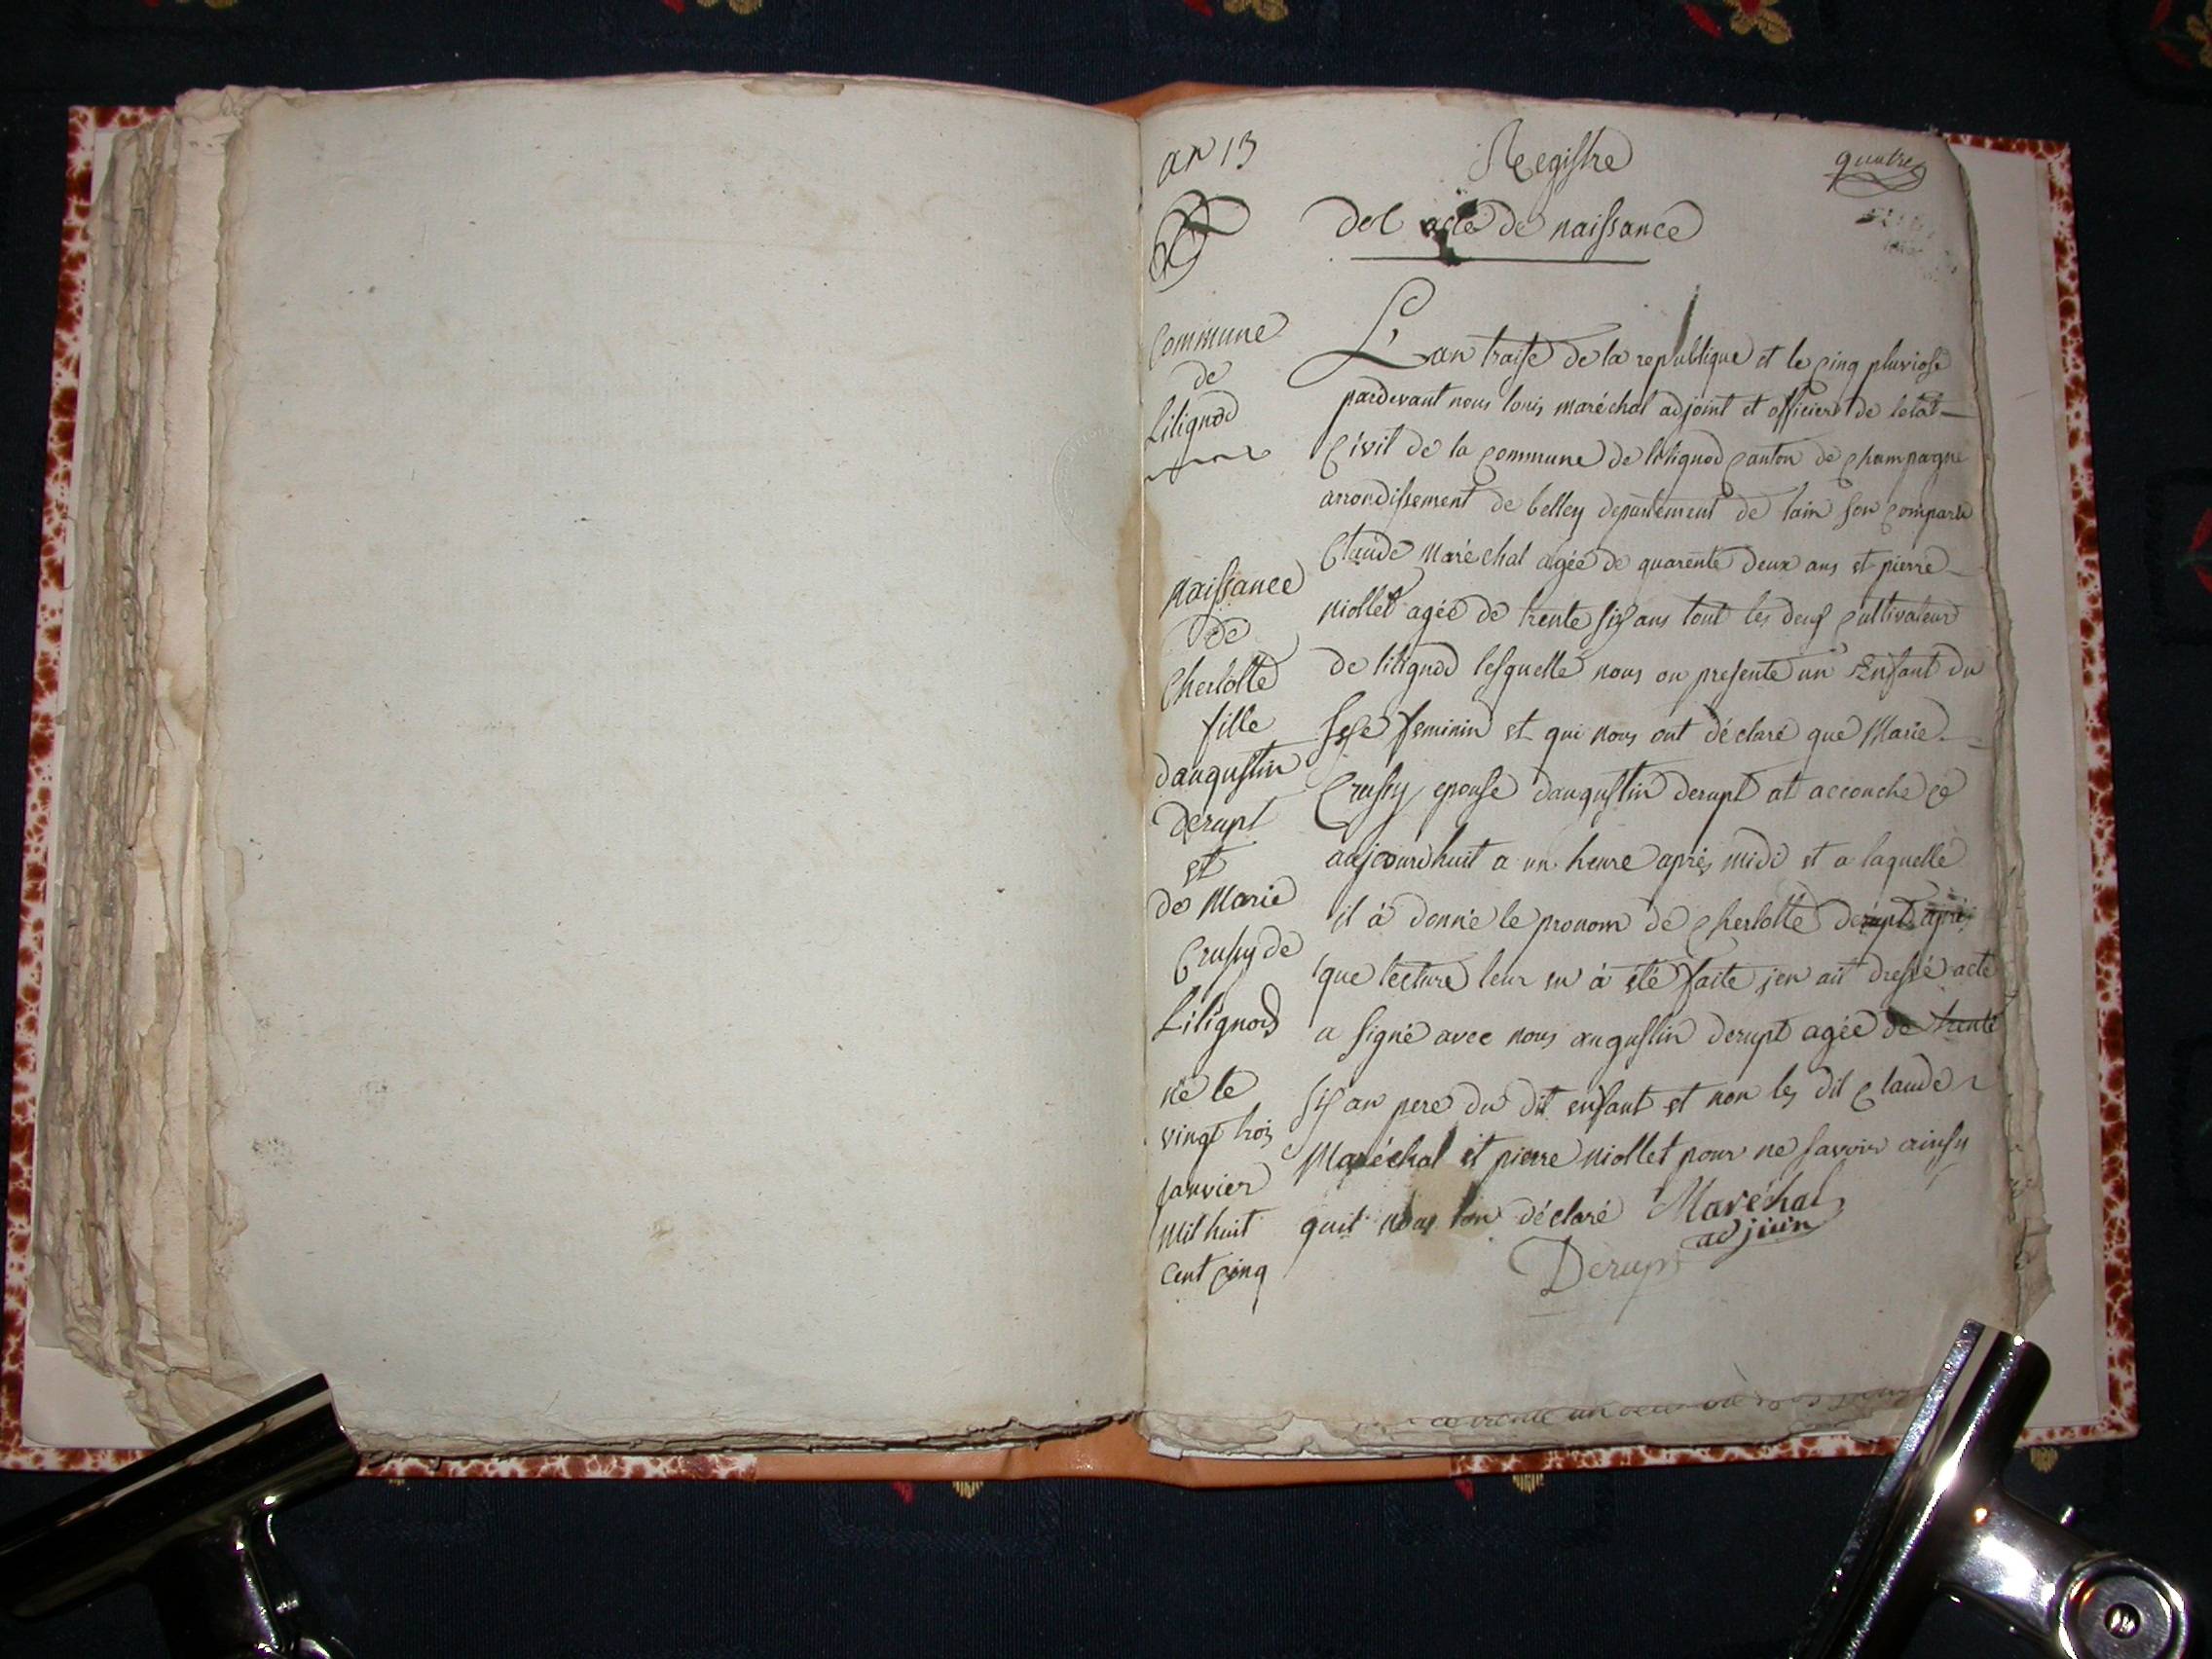 an 13
Registre
quatre
del acte de naissance
Commune
de
Lilignod
naissance
de
Cherlotte
fille
daugustin
derupt
et
de Marie
Crussy de
Lilignod
né le
vingt trois
janvier
mil huit
cent cinq
Lan traise de la republique et le cinq pluviose
pardevant nous louis maréchal adjoint et officier de letat
Civil de la commune de lilignod canton de champagne
arrondissement de belley departement de lain son comparu
Claude maréchal agée de quarente deux ans et pierre
niollet agée de trente six ans tout les deux cultivateur
de lilignod lesquelle nous on presente un Enfant du
sexe feminin et qui nous ont déclaré que Marie
Crussy epouse daugustin derupt at accouche ce
aujourdhuit a un heure après midi et a laquelle
il à donné le pronom de cherlotte derupt après
que lecture leur en à été faite jen ait dressé acte
a signé avec nous augustin derupt agée de trente
six an pere du dit enfant et non les dit claude
Maréchal et pierre niollet pour ne savoir ainsy
quit nous lon déclaré Maréchal
adjoin
Derupt